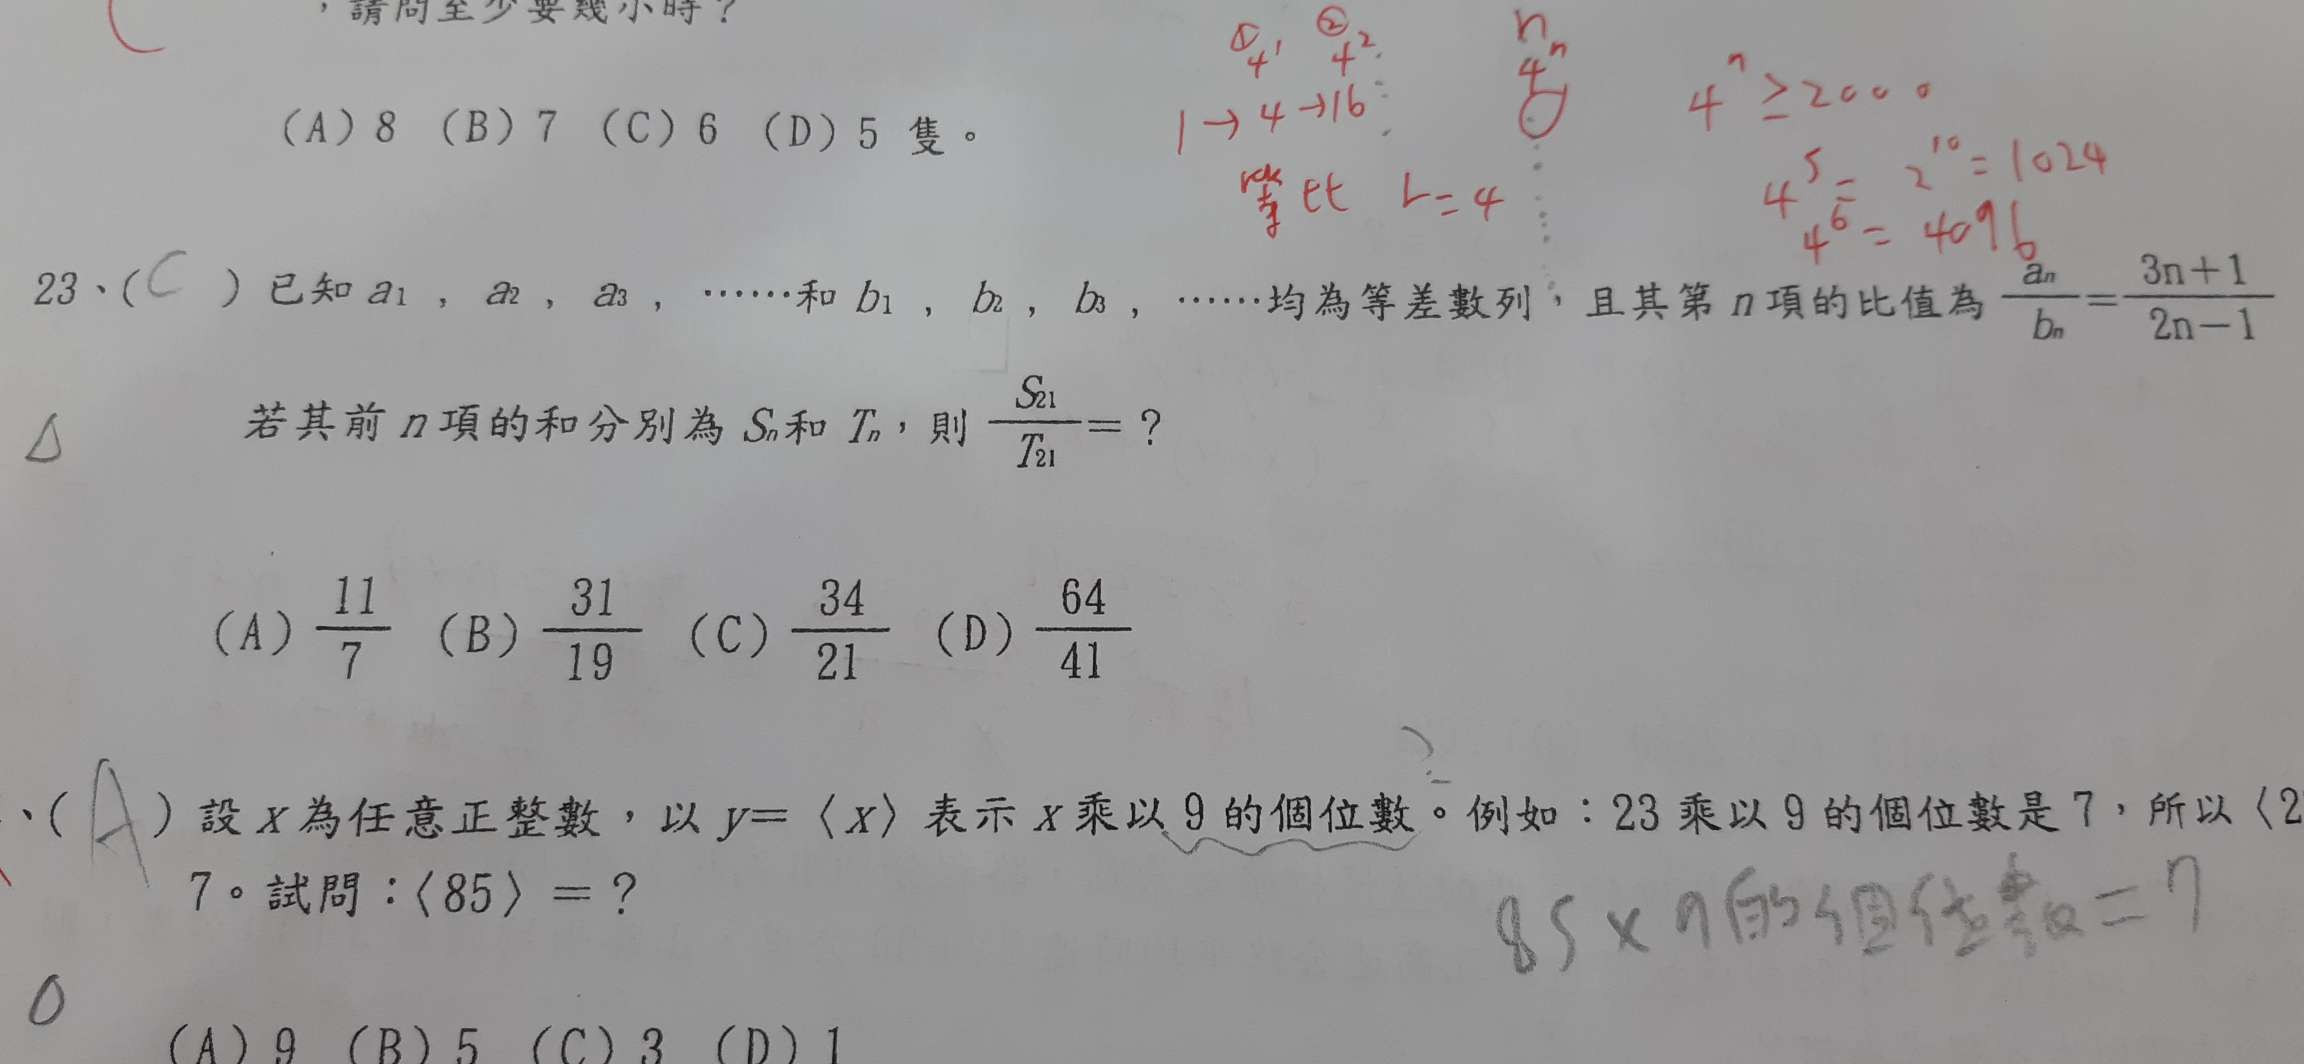 ，請問至少要幾小時？
(A) 8 (B) 7 (C) 6 (D) 5 隻。
① ② n
4¹ 4² 4ⁿ
1→4→16
等比 r=4
4ⁿ ≥2000
4⁵= 2¹⁰=1024
4⁶= 4096
23、(C) 已知 a₁ , a₂ , a₃ , ……和 b₁ , b₂ , b₃ , ……均為等差數列，且其第 n 項的比值為 aₙ/bₙ=3n+1/2n-1
△ 若其前 n 項的和分別為 Sₙ和 Tₙ，則 S₂₁/T₂₁=？
(A) 11/7 (B) 31/19 (C) 34/21 (D) 64/41
、(A) 設 x 為任意正整數，以 y=〈x〉表示 x 乘以 9 的個位數。例如：23 乘以 9 的個位數是 7，所以〈2
7。試問：〈85〉=？
85×9的個位數=
(A) 9 (B) 5 (C) 3 (D) 1